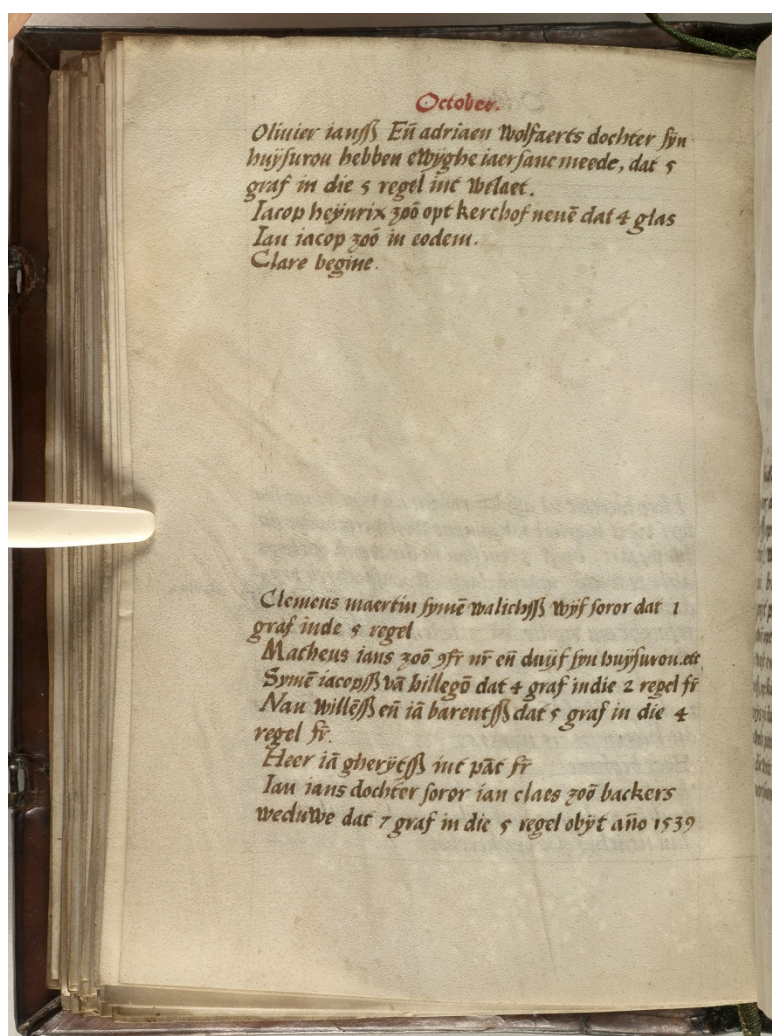 October.
Olivier ianss Eñ adriaen Wolfaerts dochter syn
huÿsurou hebben eWÿghe iaersanc meede, dat 5
graf in die 5 regel int Welaet.
Iacop heÿnrix zoō opt kerchof neuē dat 4 glas
Ian iacop zoō in eodem.
Clare begine.
Clemens maertin symē walichss Wÿf soror dat 1
graf inde 5 regel
Matheus ians zoō 9fr nr eñ duÿf syn huÿsurou. etc
Symē iacopss vā hillegō dat 4 graf in die 2 regel fr
Nan Willēss eñ iā barentss dat 5 graf in die 4
regel fr.
Heer iā gherÿtss int pāt fr
Ian ians dochter soror ian claes zoō backers
weduWe dat 7 graf in die 5 regel obÿt año 1539